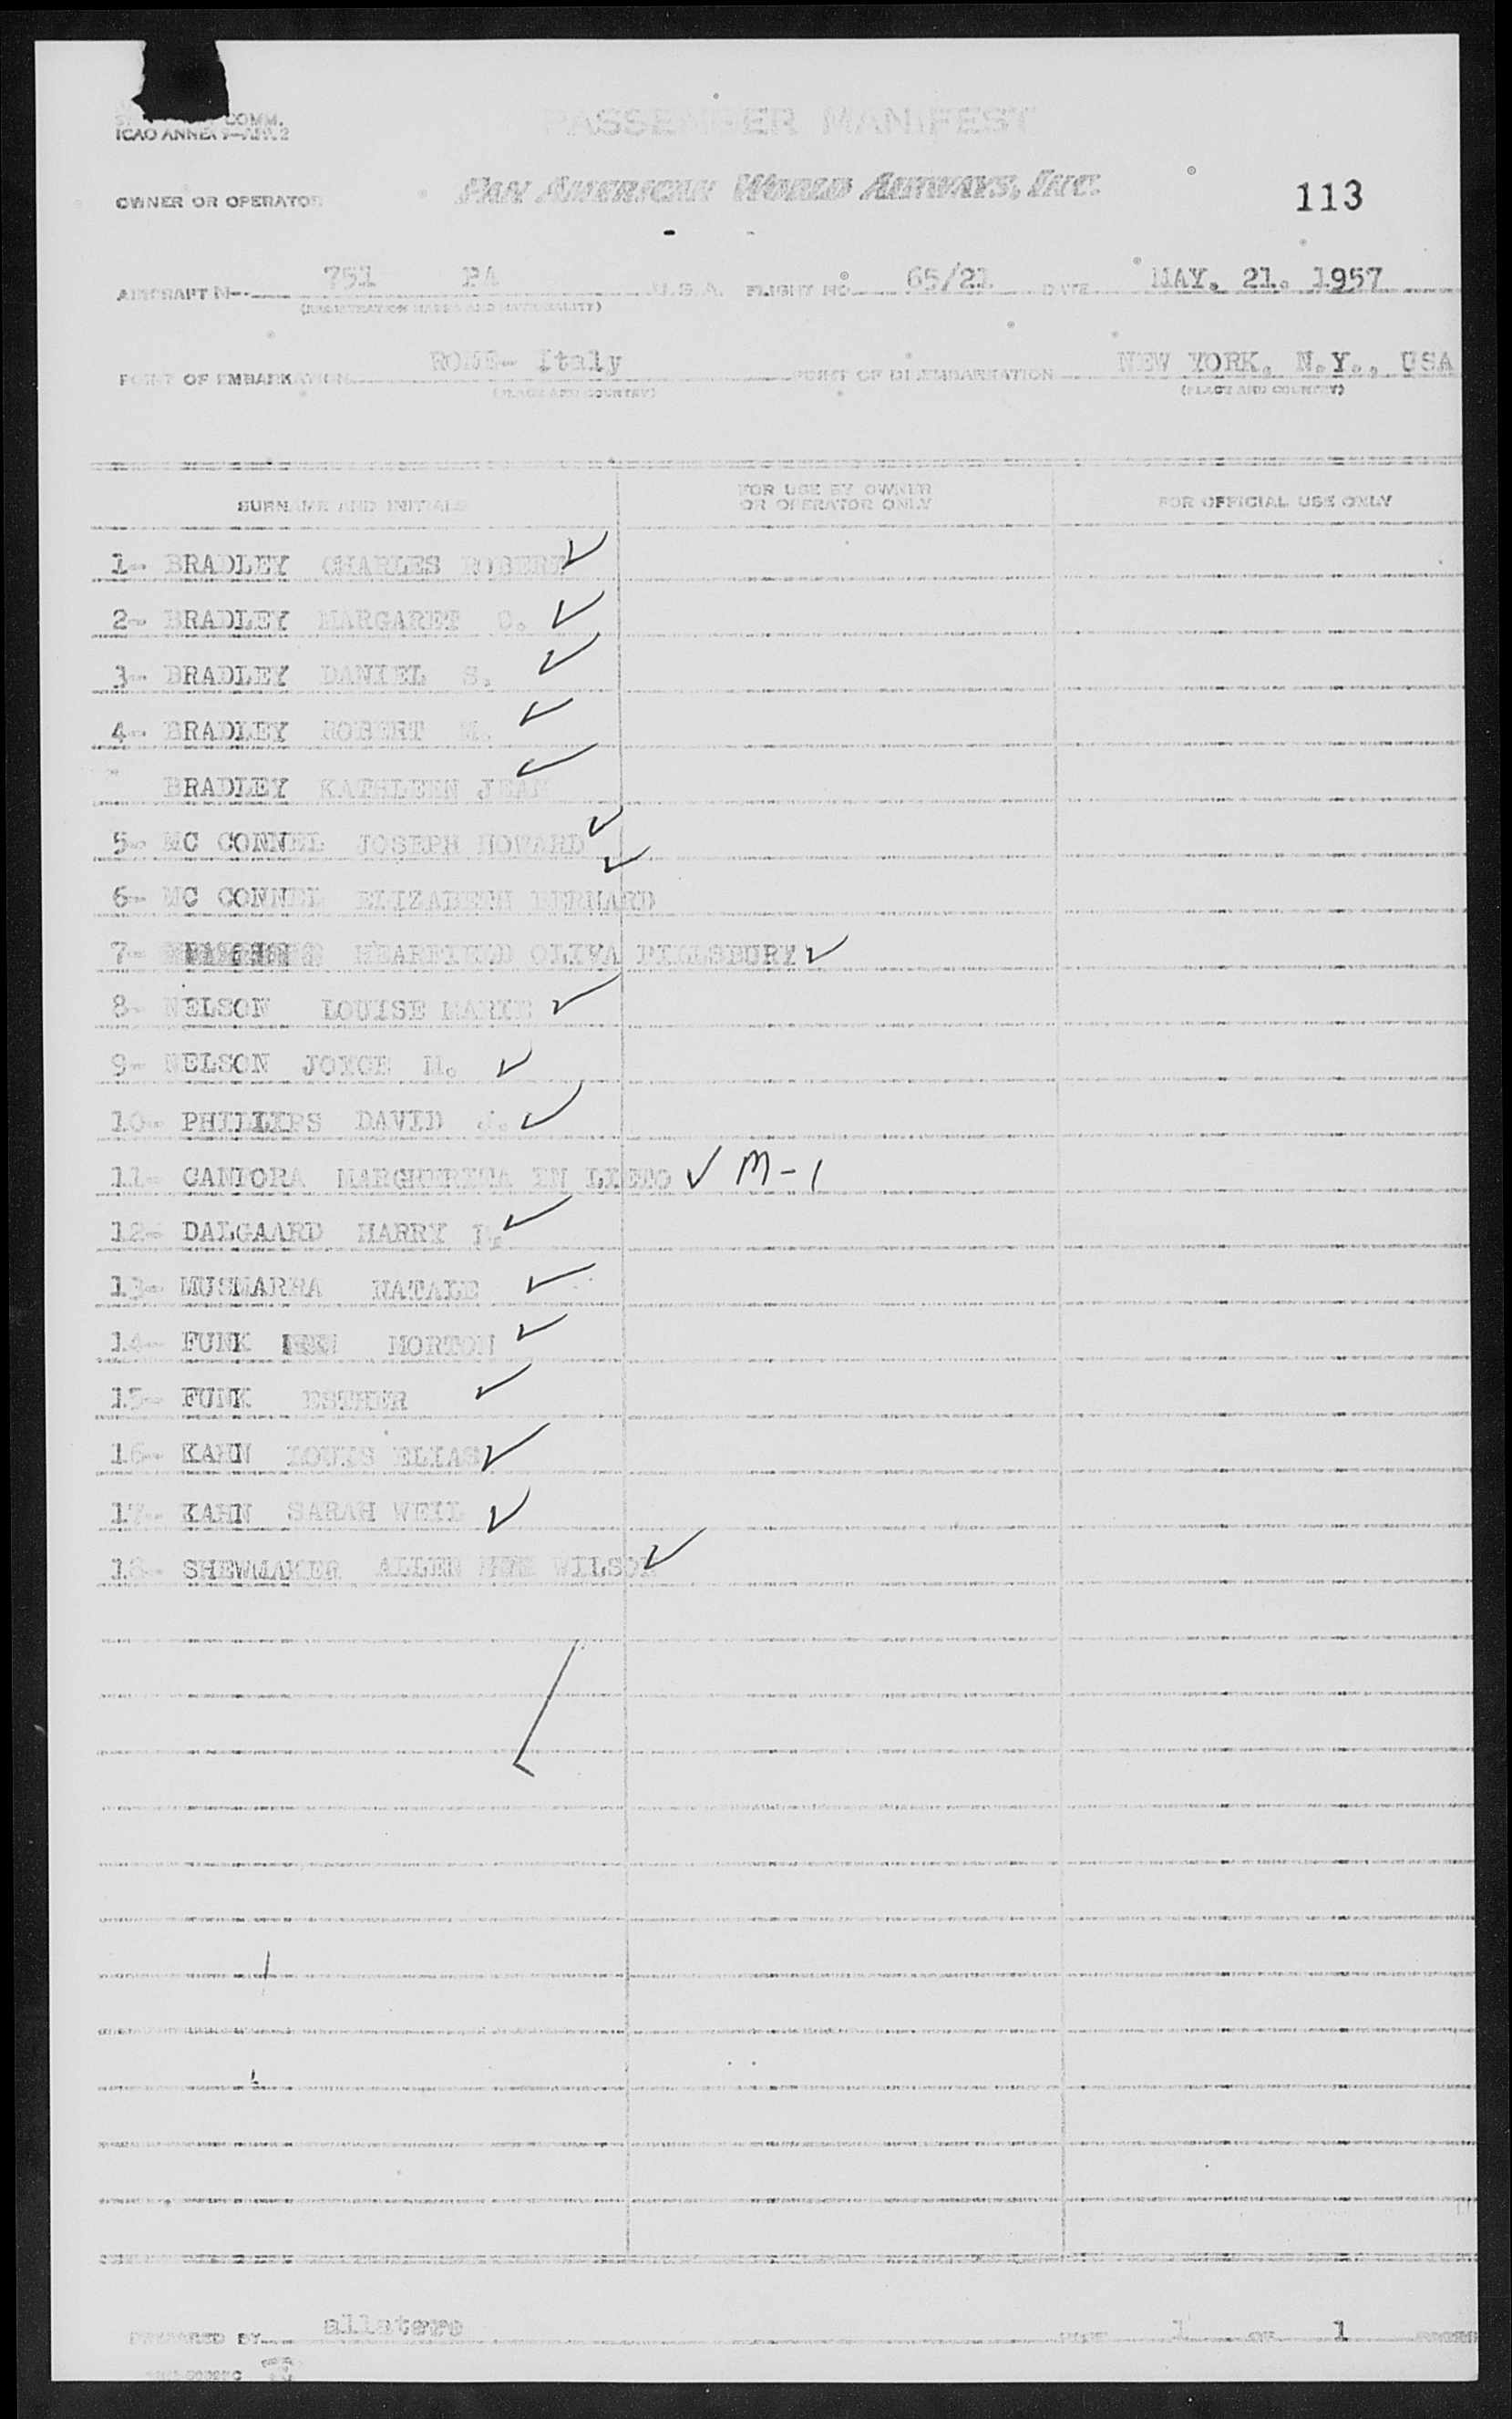 COMM.
ICAO ANNEX 9—APP. 2
PASSENGER MANIFEST
OWNER OR OPERATOR PAN AMERICAN WORLD AIRWAYS, INC. 113
AIRCRAFT 751 PA U.S.A. FLIGHT NO. 65/21 DATE MAY. 21. 1957
(REGISTRATION MARKS AND NATIONALITY)
POINT OF EMBARKATION ROME- Italy POINT OF DISEMBARKATION NEW YORK, N.Y., USA
(PLACE AND COUNTRY) (PLACE AND COUNTRY)
SURNAME AND INITIALS FOR USE BY OWNER OR OPERATOR ONLY FOR OFFICIAL USE ONLY
1- BRADLEY CHARLES ROBERT ✓
2- BRADLEY MARGARET C. ✓
3- BRADLEY DANIEL S. ✓
4- BRADLEY ROBERT M. ✓
BRADLEY KATHLEEN JEAN ✓
5- MC CONNEL JOSEPH HOWARD ✓
6- MC CONNEL ELIZABETH BERNARD ✓
7- HEARFIELD OLIVA PILLSBURY ✓
8- NELSON LOUISE MARIE ✓
9- NELSON JOYCE M. ✓
10- PHILLIPS DAVID J. ✓
11- CANTORA MARGHERITA IN LIETO ✓ M-1
12- DALGAARD HARRY ✓
13- MUSMARRA NATALE ✓
14- FUNK MORTON ✓
15- FUNK ESTHER ✓
16- KAHN LOUIS ELIAS ✓
17- KAHN SARAH WEIL ✓
18- SHEWMAKER ALLEN WILSON ✓
PREPARED BY allatere PAGE 1 OF 1